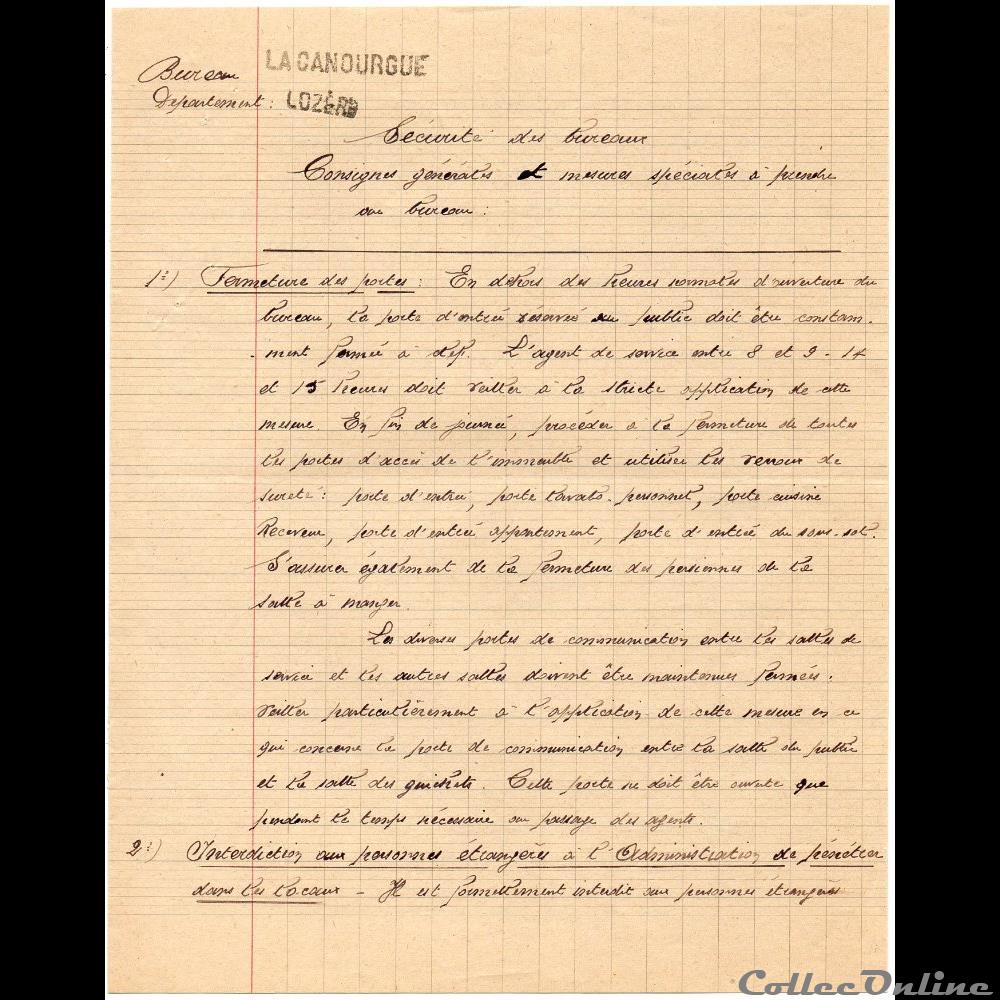 Bureau LA CANOURGUE
Département : LOZÈRE
Sécurité des bureaux
Consignes générales et mesures spéciales à prendre
au bureau :
1°) Fermeture des portes : En dehors des heures normales d'ouverture du
bureau, la porte d'entrée réservée au public doit être constam-
-ment fermée à clef. L'agent de service entre 8 et 9 - 14
et 15 heures doit veiller à la stricte application de cette
mesure. En fin de journée, procéder à la fermeture de toutes
les portes d'accès de l'immeuble et utiliser les verrous de
sureté : porte d'entrée, porte lavabo-personnel, porte cuisine
Receveur, porte d'entrée appartement, porte d'entrée du sous-sol.
S'assurer également de la fermeture des persiennes de la
salle à manger.
Les diverses portes de communication entre les salles de
service et les autres salles doivent être maintenues fermées.
Veiller particulièrement à l'application de cette mesure en ce
qui concerne la porte de communication entre la salle du public
et la salle des guichets. Cette porte ne doit être ouverte que
pendant le temps nécessaire au passage des agents.
2°) Interdiction aux personnes étrangères à l'Administration de pénétrer
dans les locaux - Il est formellement interdit aux personnes étrangères
CollecOnline